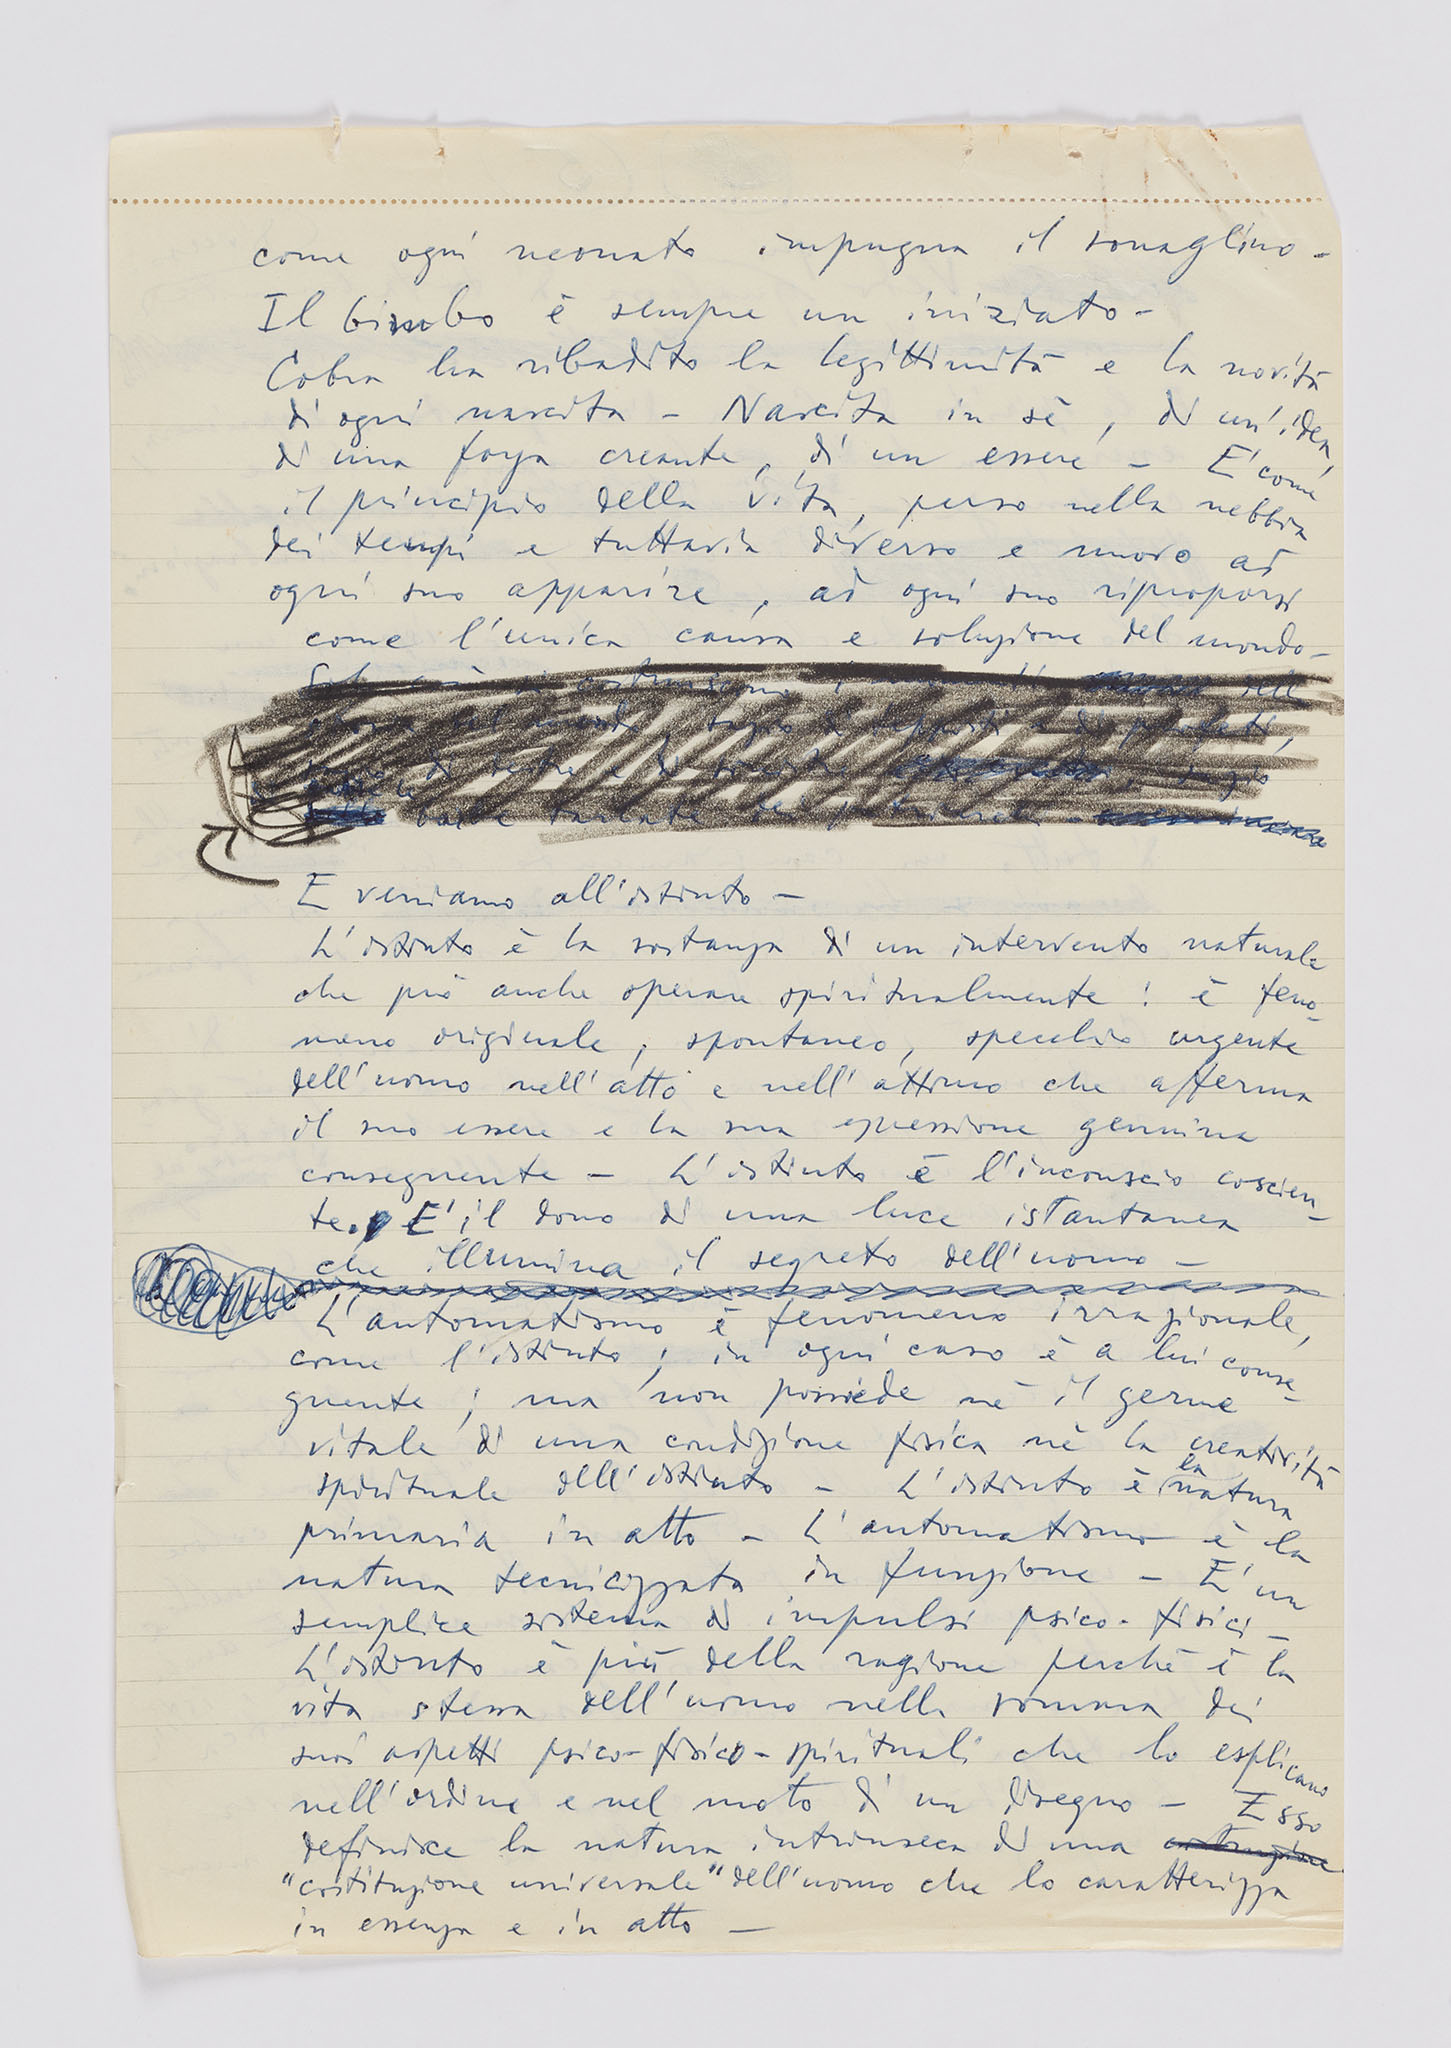 come ogni neonato impugna il sonaglino -
Il bimbo è sempre un iniziato -
Cobra ha ribadito la legittimità e la novità
di ogni nascita - Nascita in sè, di un'idea,
di una forza creante, di un essere - E' come
il principio della vita, perso nella nebbia
dei tempi e tuttavia diverso e nuovo ad
ogni suo apparire, ad ogni suo riproporsi
come l'unica causa e soluzione del mondo -
E veniamo all'istinto -
L'istinto è la sostanza di un intervento naturale
che può anche operare spiritualmente: è feno-
meno originale, spontaneo, specchio urgente
dell'uomo nell'atto e nell'attimo che afferma
il suo essere e la sua espressione genuina
conseguente - L'istinto è l'inconscio coscien-
te. E' il dono di una luce istantanea
che illumina il segreto dell'uomo -
L'automatismo è fenomeno irrazionale,
come l'istinto; in ogni caso è a lui conse-
guente; ma non possiede nè il germe
vitale di una condizione fisica nè la creatività
spirituale dell'istinto - L'istinto è la natura
primaria in atto - L'automatismo è la
natura tecnicizzata in funzione - E' un
semplice sistema di impulsi psico-fisici -
L'istinto è più della ragione perchè è la
vita stessa dell'uomo nella somma dei
suoi aspetti psico-fisico-spirituali che lo esplicano
nell'ordine e nel moto di un disegno - Esso
definisce la natura intrinseca di una
"costituzione universale" dell'uomo che lo caratterizza
in essenza e in atto -